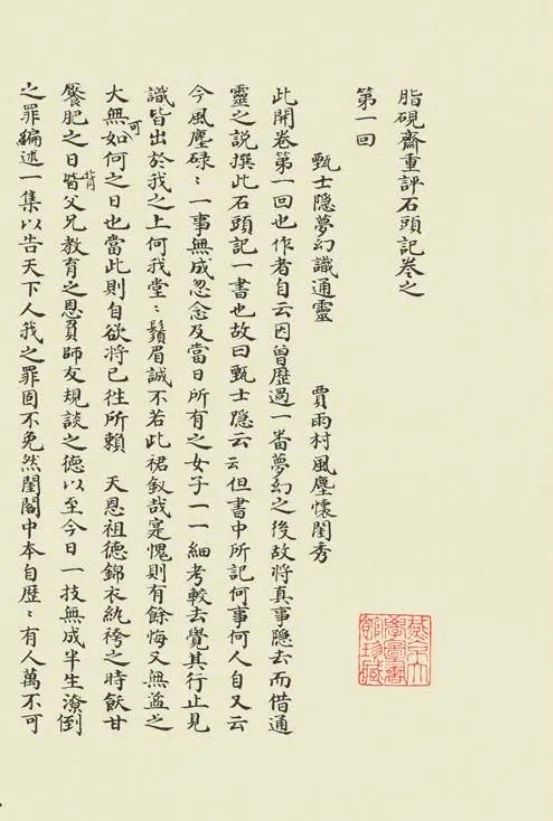 脂硯齋重評石頭記卷之
第一回
甄士隱夢幻識通靈　賈雨村風塵懷閨秀
此開卷第一回也作者自云因曾歷過一番夢幻之後故將真事隱去而借通
靈之說撰此石頭記一書也故曰甄士隱云云但書中所記何事何人自又云
今風塵碌:一事無成忽念及當日所有之女子一一細考較去覺其行止見
識皆出於我之上何我堂:鬚眉誠不若此裙釵哉寔愧則有餘悔又無益之
大無可如何之日也當此則自欲將已往所賴　天恩祖德錦衣紈袴之時飫甘
饜肥之日皆背父兄教育之恩負師友規談之德以至今日一技無成半生潦倒
之罪編述一集以告天下人我之罪固不免然閨閣中本自歷:有人萬不可
燕京大
學圖書
館珍藏